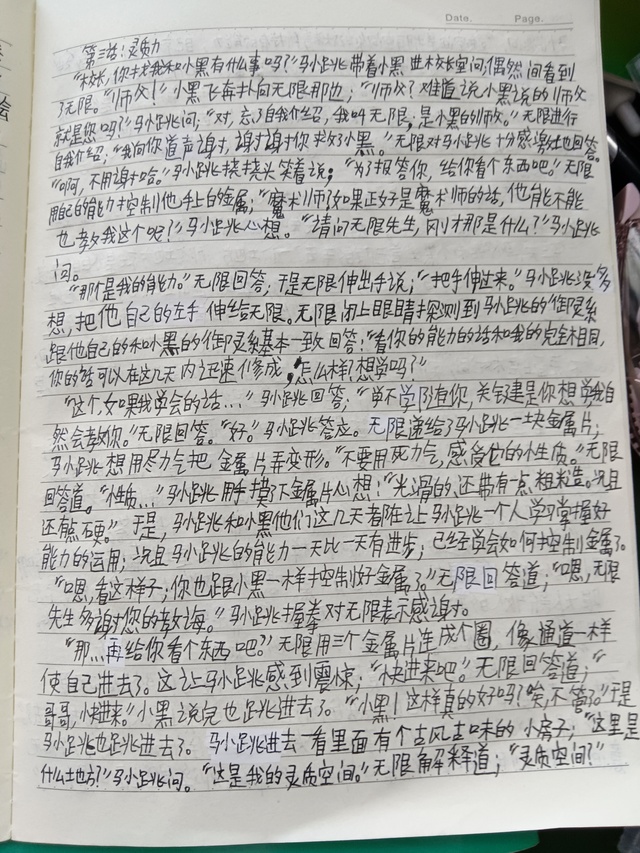 Date. Page.
第三话:灵质力
“校长,你找我和小黑有什么事吗?”马小跳带着小黑进校长空间,偶然间看到
了无限。“师父!”小黑飞奔扑向无限那边;“师父?难道说小黑说的师父
就是您吗?”马小跳问;“对,忘了自我介绍,我叫无限;是小黑的师父。”无限进行
自我介绍;“我向你道声谢,谢谢你救了小黑。”无限对马小跳十分感谢地回答。
“啊,不用谢哈。”马小跳挠挠头笑着说;“为了报答你,给你看个东西吧。”无限
用自己的能力控制他手上的金属;“魔术师?如果正好是魔术师的话,他能不能
也教我这个呢?”马小跳心想。“请问无限先生,刚才那是什么?”马小跳
问。
“那个是我的能力。”无限回答,于是无限伸出手说;“把手伸过来。”马小跳没多
想,把他自己的左手伸给无限。无限闭上眼睛探测到马小跳的御灵系
跟他自己的和小黑的御灵系基本一致回答:“看你的能力的话和我的完全相同,
你的话可以在这几天内迅速修成,怎么样?想学吗?”
“这个,如果我学会的话...”马小跳回答;“学不学随有你,关键是你想学我自
然会教你。”无限回答。“好。”马小跳答应。无限递给了马小跳一块金属片;
马小跳想用尽力气把金属片弄变形。“不要用死力气,感受它的性质。”无限
回答道。“性质...”马小跳用手摸了下金属片心想:“光滑的,还带有一点粗糙。况且
还有点硬。”于是,马小跳和小黑他们这几天都在让马小跳一个人学习掌握好
能力的运用;况且马小跳的能力一天比一天有进步;已经学会如何控制金属了。
“嗯,看这样子;你也跟小黑一样控制好金属了。”无限回答道;“嗯,无限
先生多谢您的教诲。”马小跳握拳对无限表示感谢。
“那...再给你看个东西吧?”无限用三个金属片连成个圈,像通道一样
使自己进去了。这让马小跳感到震惊;“快进来吧。”无限回答道;“
哥哥,快进来。”小黑说完也跳进去了。“小黑!这样真的好吗?唉,不管了。”于是
马小跳也跳进去了。马小跳进去一看里面有个古风古味的小房子;“这里是
什么地方?”马小跳问。“这是我的灵质空间。”无限解释道;“灵质空间?”